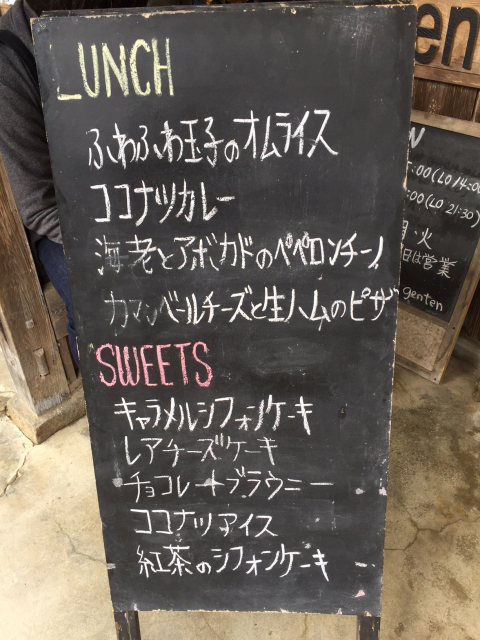 LUNCH
ふわふわ玉子のオムライス
ココナツカレー
海老とアボカドのペペロンチーノ
カマンベールチーズと生ハムのピザ
SWEETS
キャラメルシフォンケーキ
レアチーズケーキ
チョコレートブラウニー
ココナツアイス
紅茶のシフォンケーキ
en
N
:00(LO 14:00
:00(LO 21:30)
月・火
日は営業
genten